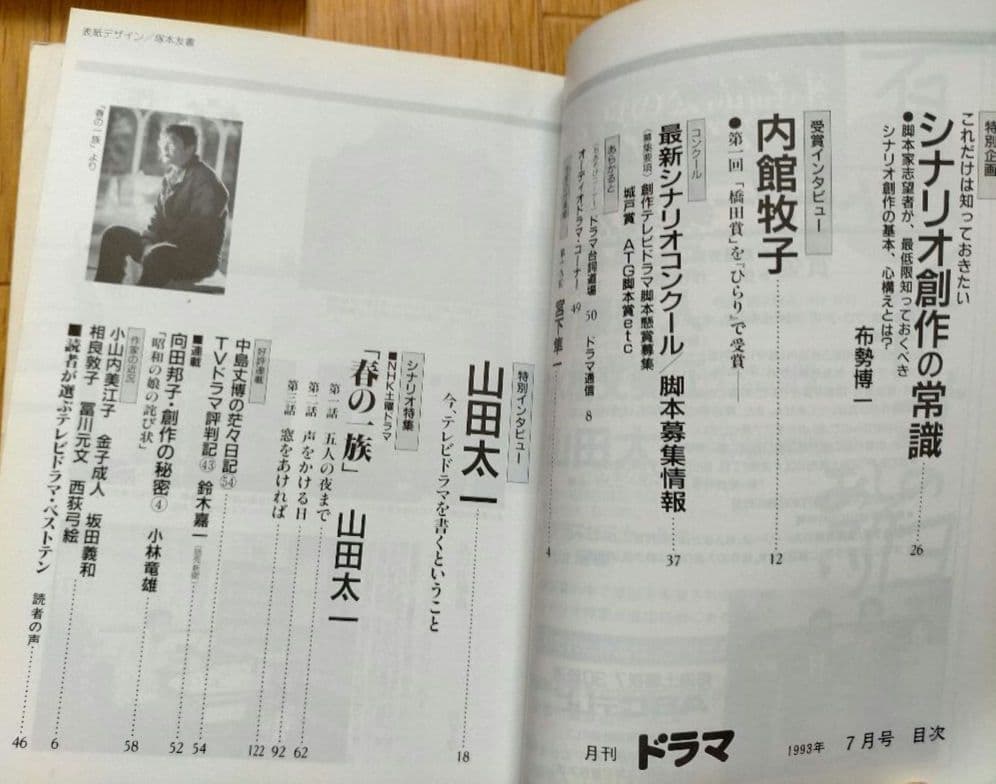 特別企画
これだけは知っておきたい
シナリオ創作の常識
●脚本家志望者が、最低限知っておくべき
シナリオ創作の基本、心構えとは?
布勢博一
26
受賞インタビュー
内館牧子
12
●第一回「橋田賞」を『ひらり』で受賞――
コンクール
最新シナリオコンクール/脚本募集情報
37
〈募集要項〉創作テレビドラマ脚本懸賞募集
城戸賞 ATG脚本賞etc
あらかると
ドラマ台詞道場 50 ドラマ通信 8
オーディオドラマ・コーナー 49
宮下隼一
4
月刊 ドラマ 1993年 7月号 目次
表紙デザイン/塚本友書
特別インタビュー
山田太一
18
今、テレビドラマを書くということ
シナリオ特集
■NHK土曜ドラマ
「春の一族」 山田太一
第一話 五人の夜まで
62
第二話 声をかける日
92
第三話 窓をあければ
122
好評連載
中島丈博の茫々日記54
TVドラマ評判記43 鈴木嘉一
54
■連載
向田邦子・創作の秘密4 小林竜雄
52
「昭和の娘の詫び状」
作家の近況
小山内美江子 金子成人 坂田義和
相良敦子 冨川元文 西荻弓絵
58
■読者が選ぶテレビドラマ・ベストテン
6
読者の声
46
「春の一族」より